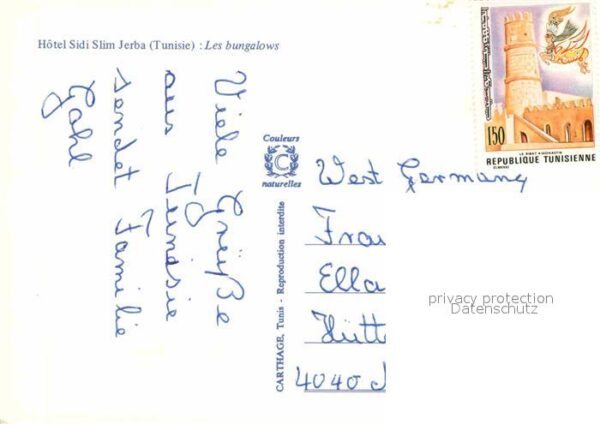 Hôtel Sidi Slim Jerba (Tunisie) : Les bungalows
Viele Grüße
aus Tunesie
sendet Familie
Gahl
Couleurs
C
naturelles
CARTHAGE, Tunis - Reproduction interdite
150
REPUBLIQUE TUNISIENNE
West Germany
Frau
Ella
Hütt
4040
privacy protection
Datenschutz